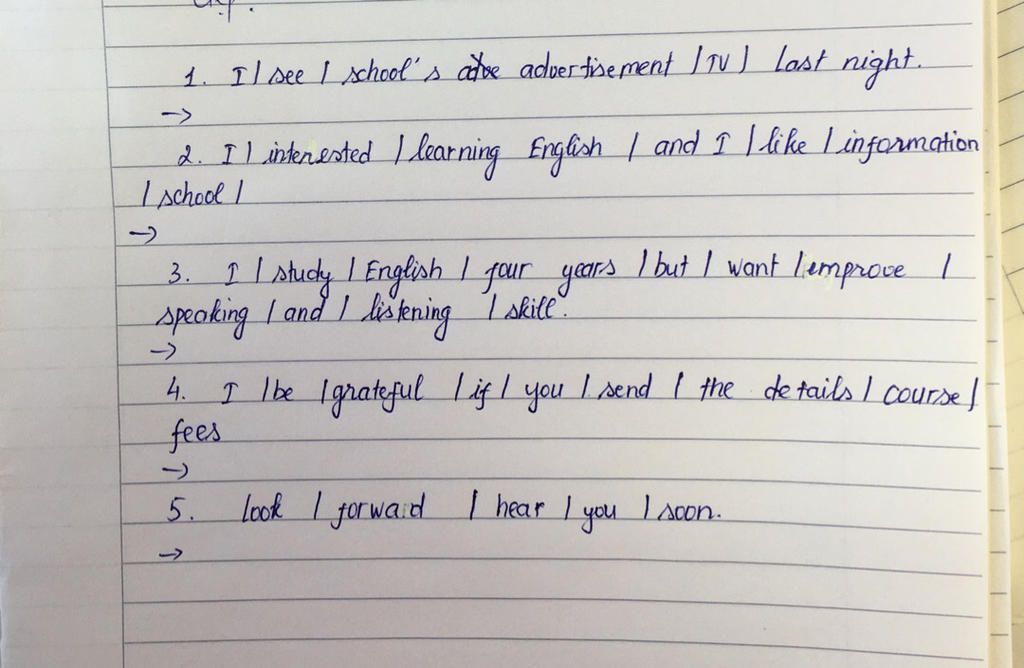 1. I / see / school's advertisement / TV / last night.
→
2. I / interested / learning English / and I / like / information
/ school /
→
3. I / study / English / four years / but / want / emprove /
speaking / and / listening / skill.
→
4. I / be / grateful / if / you / send / the details / course /
fees
→
5. look / forward / hear / you / soon.
→